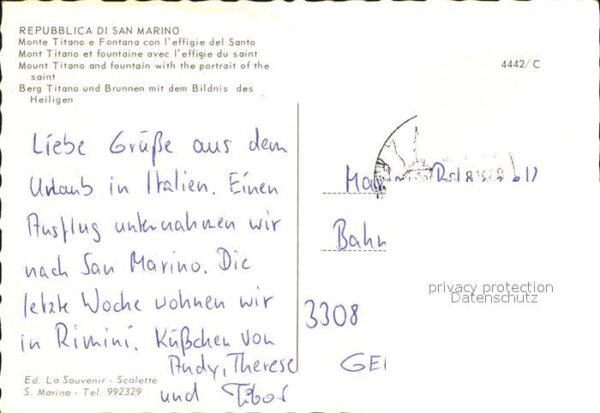 REPUBBLICA DI SAN MARINO
Monte Titano e Fontana con l'effigie del Santo
Mont Titano et fountaine avec l'effigie du saint
Mount Titano and fountain with the portrait of the
saint
Berg Titano und Brunnen mit dem Bildnis des
Heiligen
4442/C
Liebe Grüße aus dem
Urlaub in Italien. Einen
Ausflug unternahmen wir
nach San Marino. Die
letzte Woche wohnen wir
in Rimini. Küßchen von
Andy, Therese
und Tibor
Bahn
3308
GEI
privacy protection
Datenschutz
Ed. La Souvenir - Scalette
S. Marino - Tel. 992329